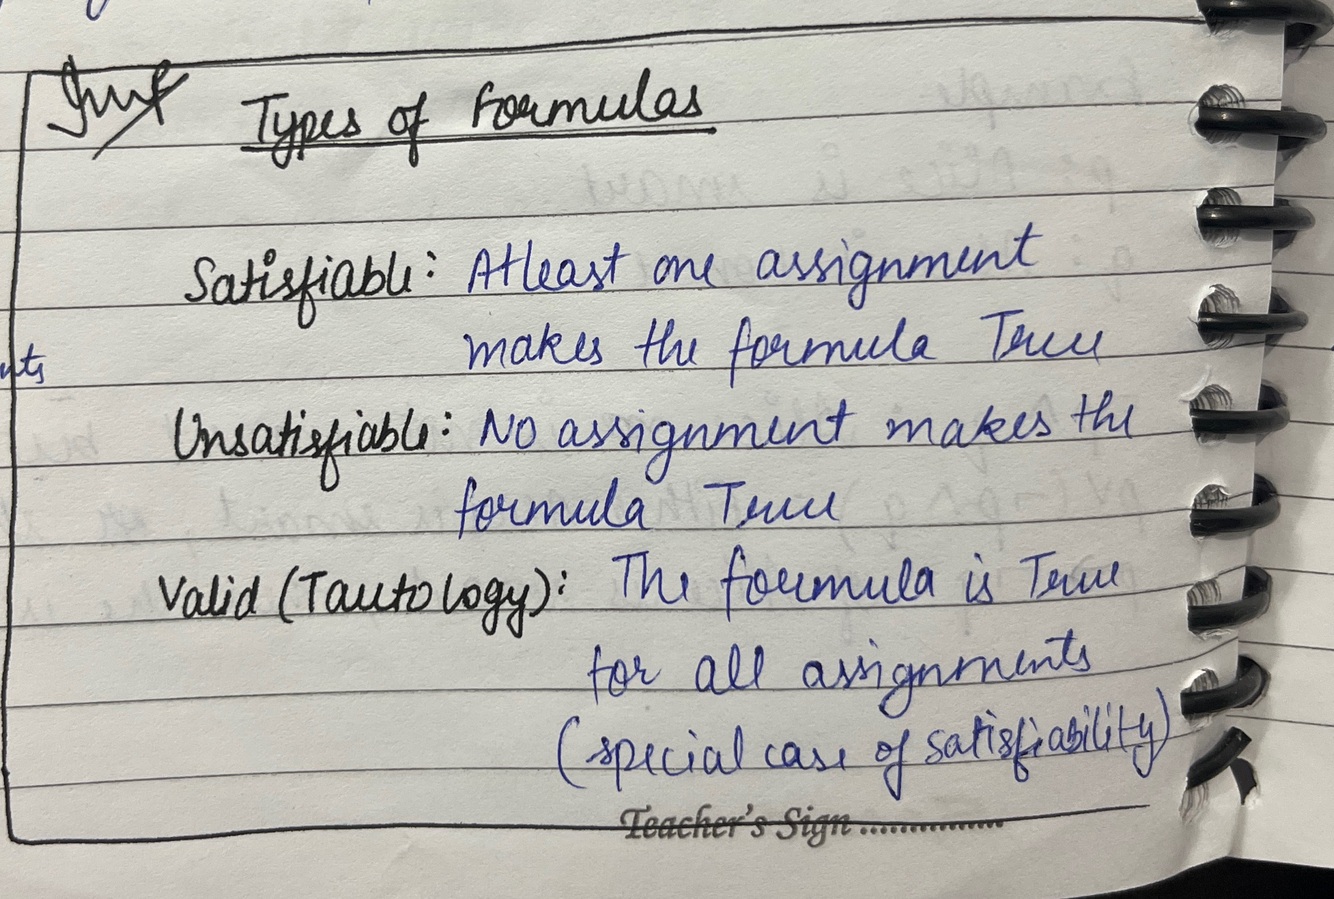 Types of Formulas
Satisfiable: Atleast one assignment
makes the formula True
Unsatisfiable: No assignment makes the
formula True
Valid (Tautology): The formula is True
for all assignments
(special case of satisfiability)
Teacher's Sign ................